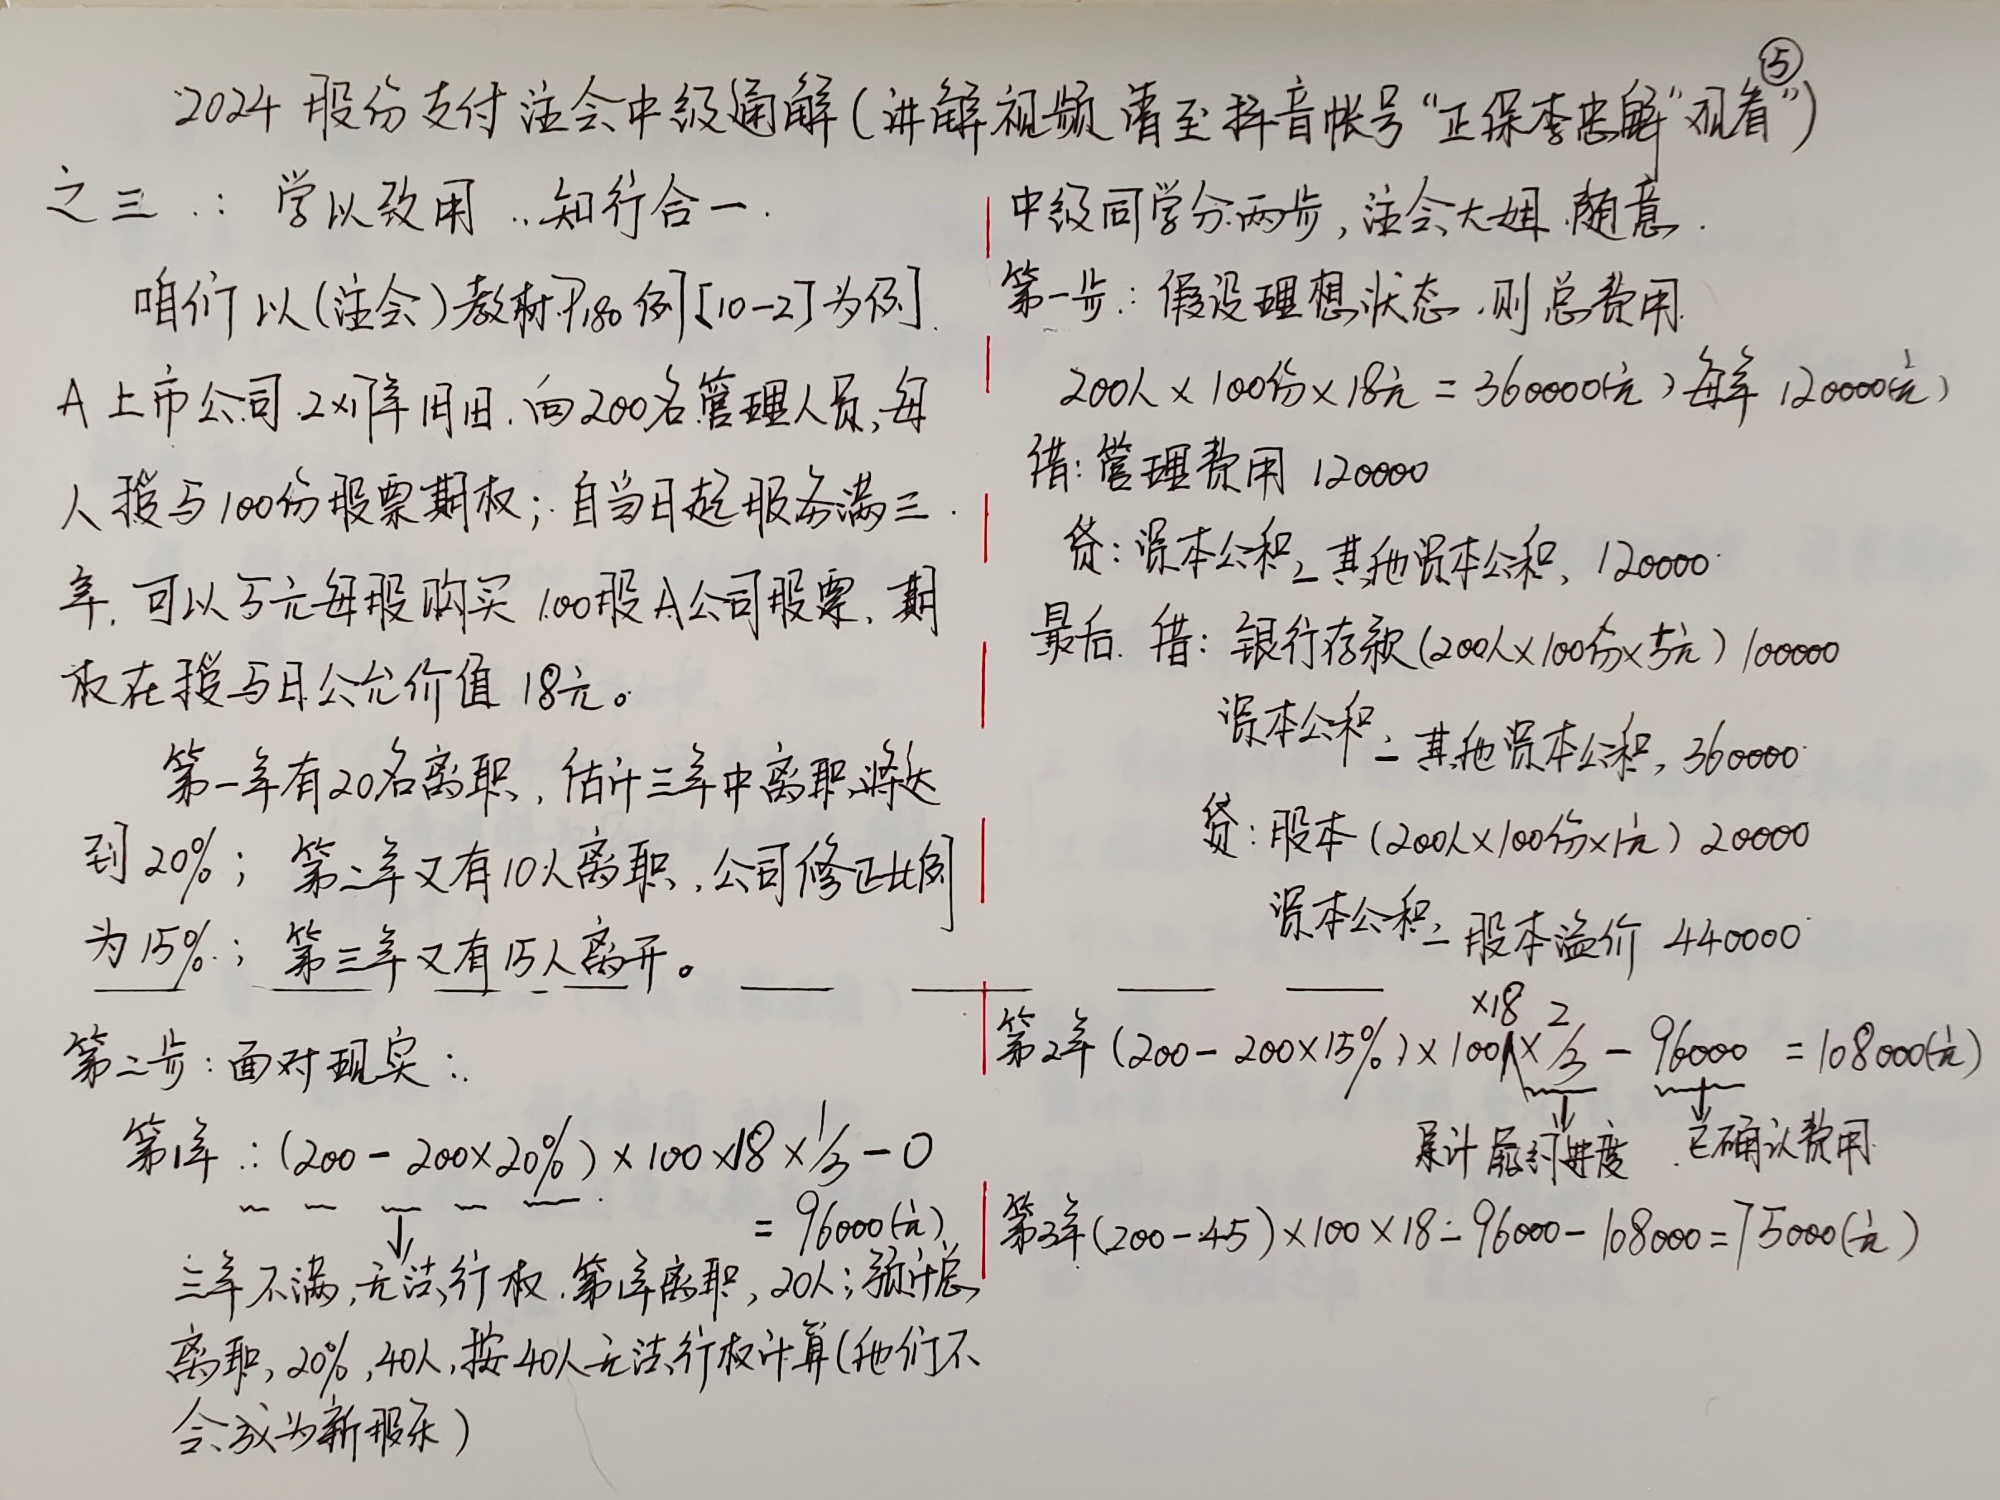 ⑤
2024 股份支付 注会中级通解(讲解视频 请至抖音帐号“正保李忠解”观看”)
之三：学以致用..知行合一.
咱们以(注会)教材P180例[10-2]为例.
A上市公司2×1年1月1日.向200名管理人员,每
人授与100份股票期权;自当日起服务满三
年,可以5元每股购买100股A公司股票,期
权在授与日公允价值18元。
第一年有20名离职,估计三年中离职将达
到20%;第二年又有10人离职,公司修正比例
为15%;第三年又有15人离开。
中级同学分两步,注会大姐随意.
第一步:假设理想状态,则总费用
200人×100份×18元=360000(元)每年120000(元)
借:管理费用 120000
贷:资本公积–其他资本公积, 120000
最后.借:银行存款(200人×100份×5元)100000
资本公积–其他资本公积, 360000
贷:股本(200人×100份×1元)20000
资本公积–股本溢价 440000
第二步:面对现实:
第1年:(200-200×20%)×100×18×1/3-0
=96000(元)
三年不满,无法行权.第1年离职,20人;预计总
离职,20%,40人,按40人无法行权计算(他们不
会成为新股东)
第2年(200-200×15%)×100×18×2/3-96000=108000(元)
累计履约进度 已确认费用
第3年(200-45)×100×18-96000-108000=75000(元)